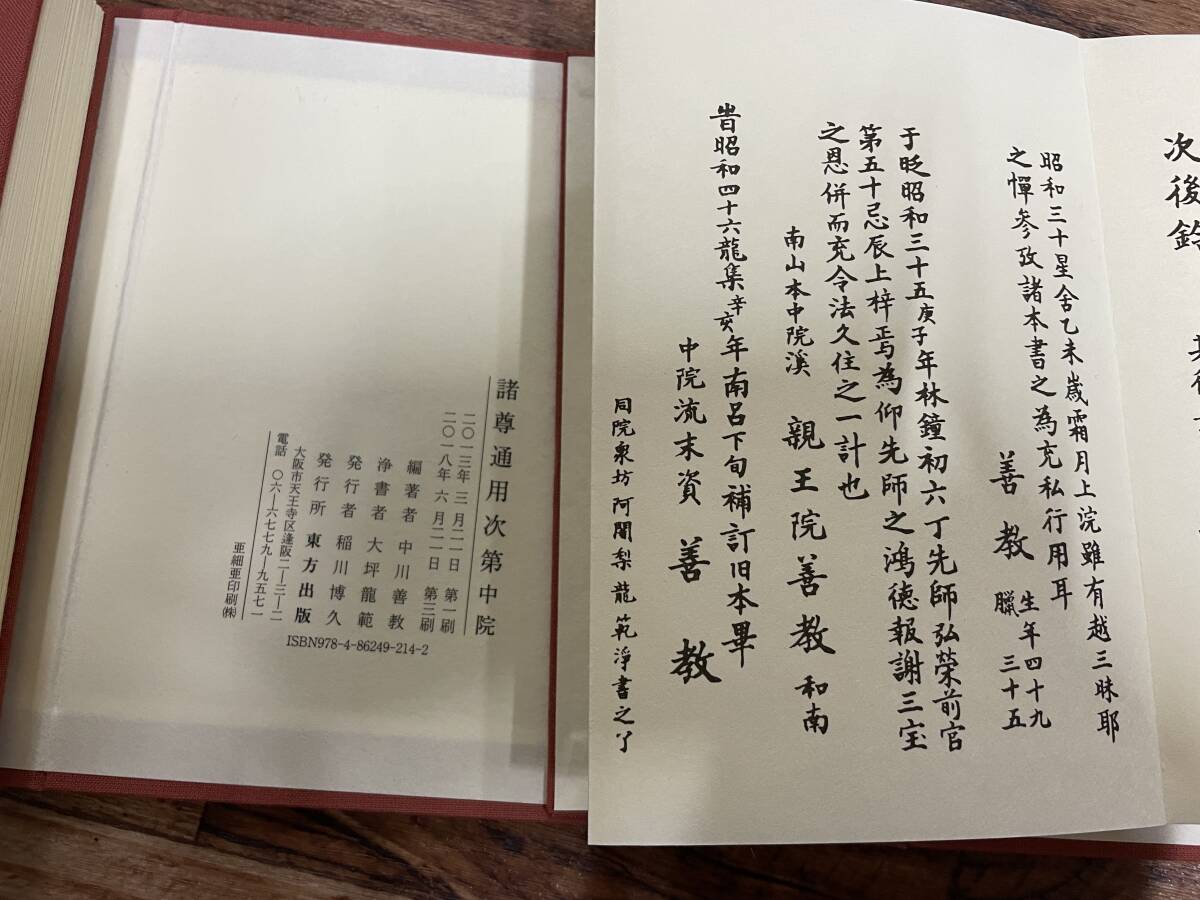 次後鈴
昭和三十星舎乙未歳霜月上浣雖有越三昧耶
之憚参攷諸本書之為充私行用耳
善教 生年四十九
臘三十五
于時昭和三十五庚子年林鐘初六丁先師弘榮前官
第五十忌辰上梓焉為仰先師之鴻徳報謝三宝
之恩併而充令法久住之一計也
南山本中院溪 親王院善教和南
旹昭和四十六龍集辛亥年南呂下旬補訂旧本畢
中院流末資 善教
同院泉坊阿闍梨龍範浄書之了
諸尊通用次第中院
二〇一三年 三月二一日 第一刷
二〇一八年 六月二一日 第三刷
編著者 中川善教
浄書者 大坪龍範
発行者 稲川博久
発行所 東方出版
大阪市天王寺区逢阪二―三―二
電話 〇六―六七七九―九五七一
亜細亜印刷㈱
ISBN978-4-86249-214-2